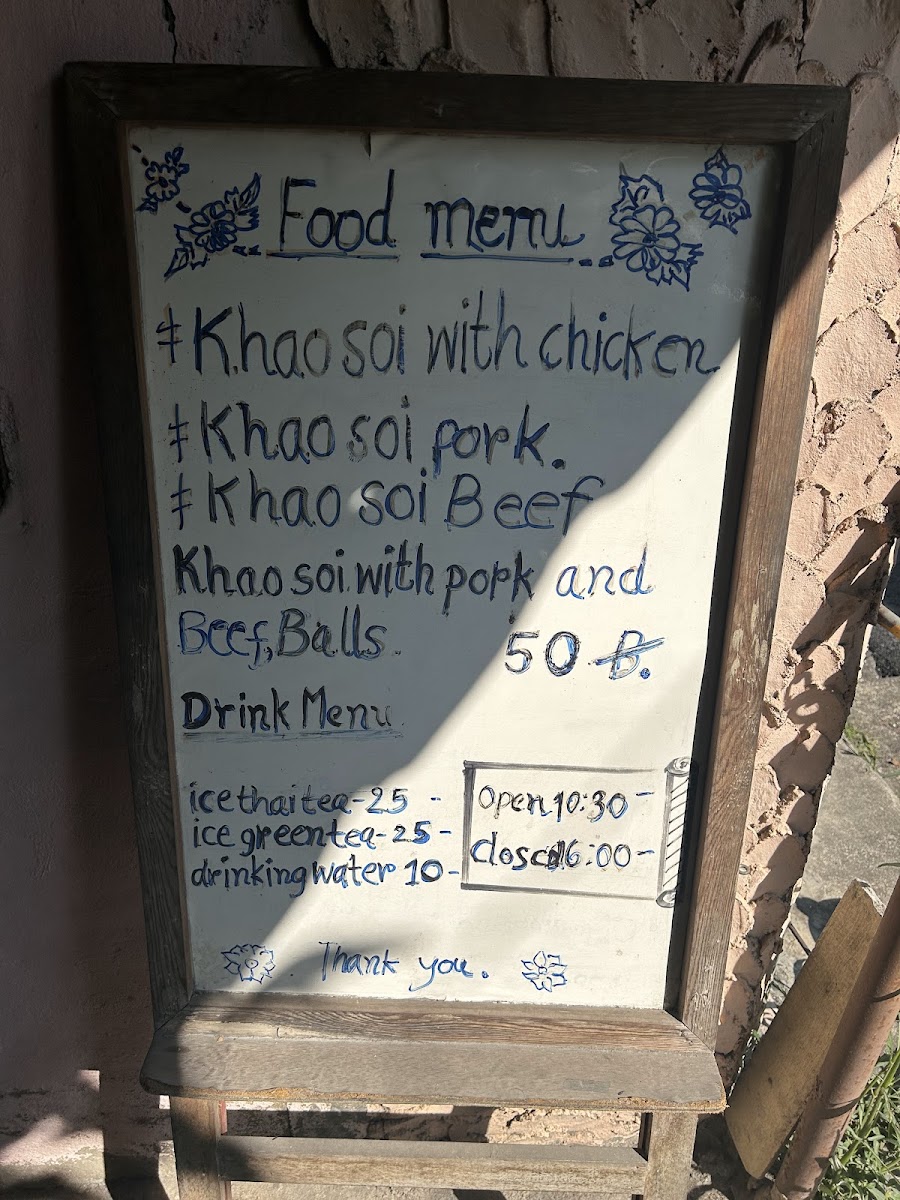 Food menu
‡Khao soi with chicken
‡Khao soi pork.
‡Khao soi Beef
Khao soi with pork and
Beef, Balls. 50 ฿.
Drink Menu
ice thai tea-25 -
ice green tea-25-
drinking water 10-
Open 10:30-
Closed 16:00-
Thank you.